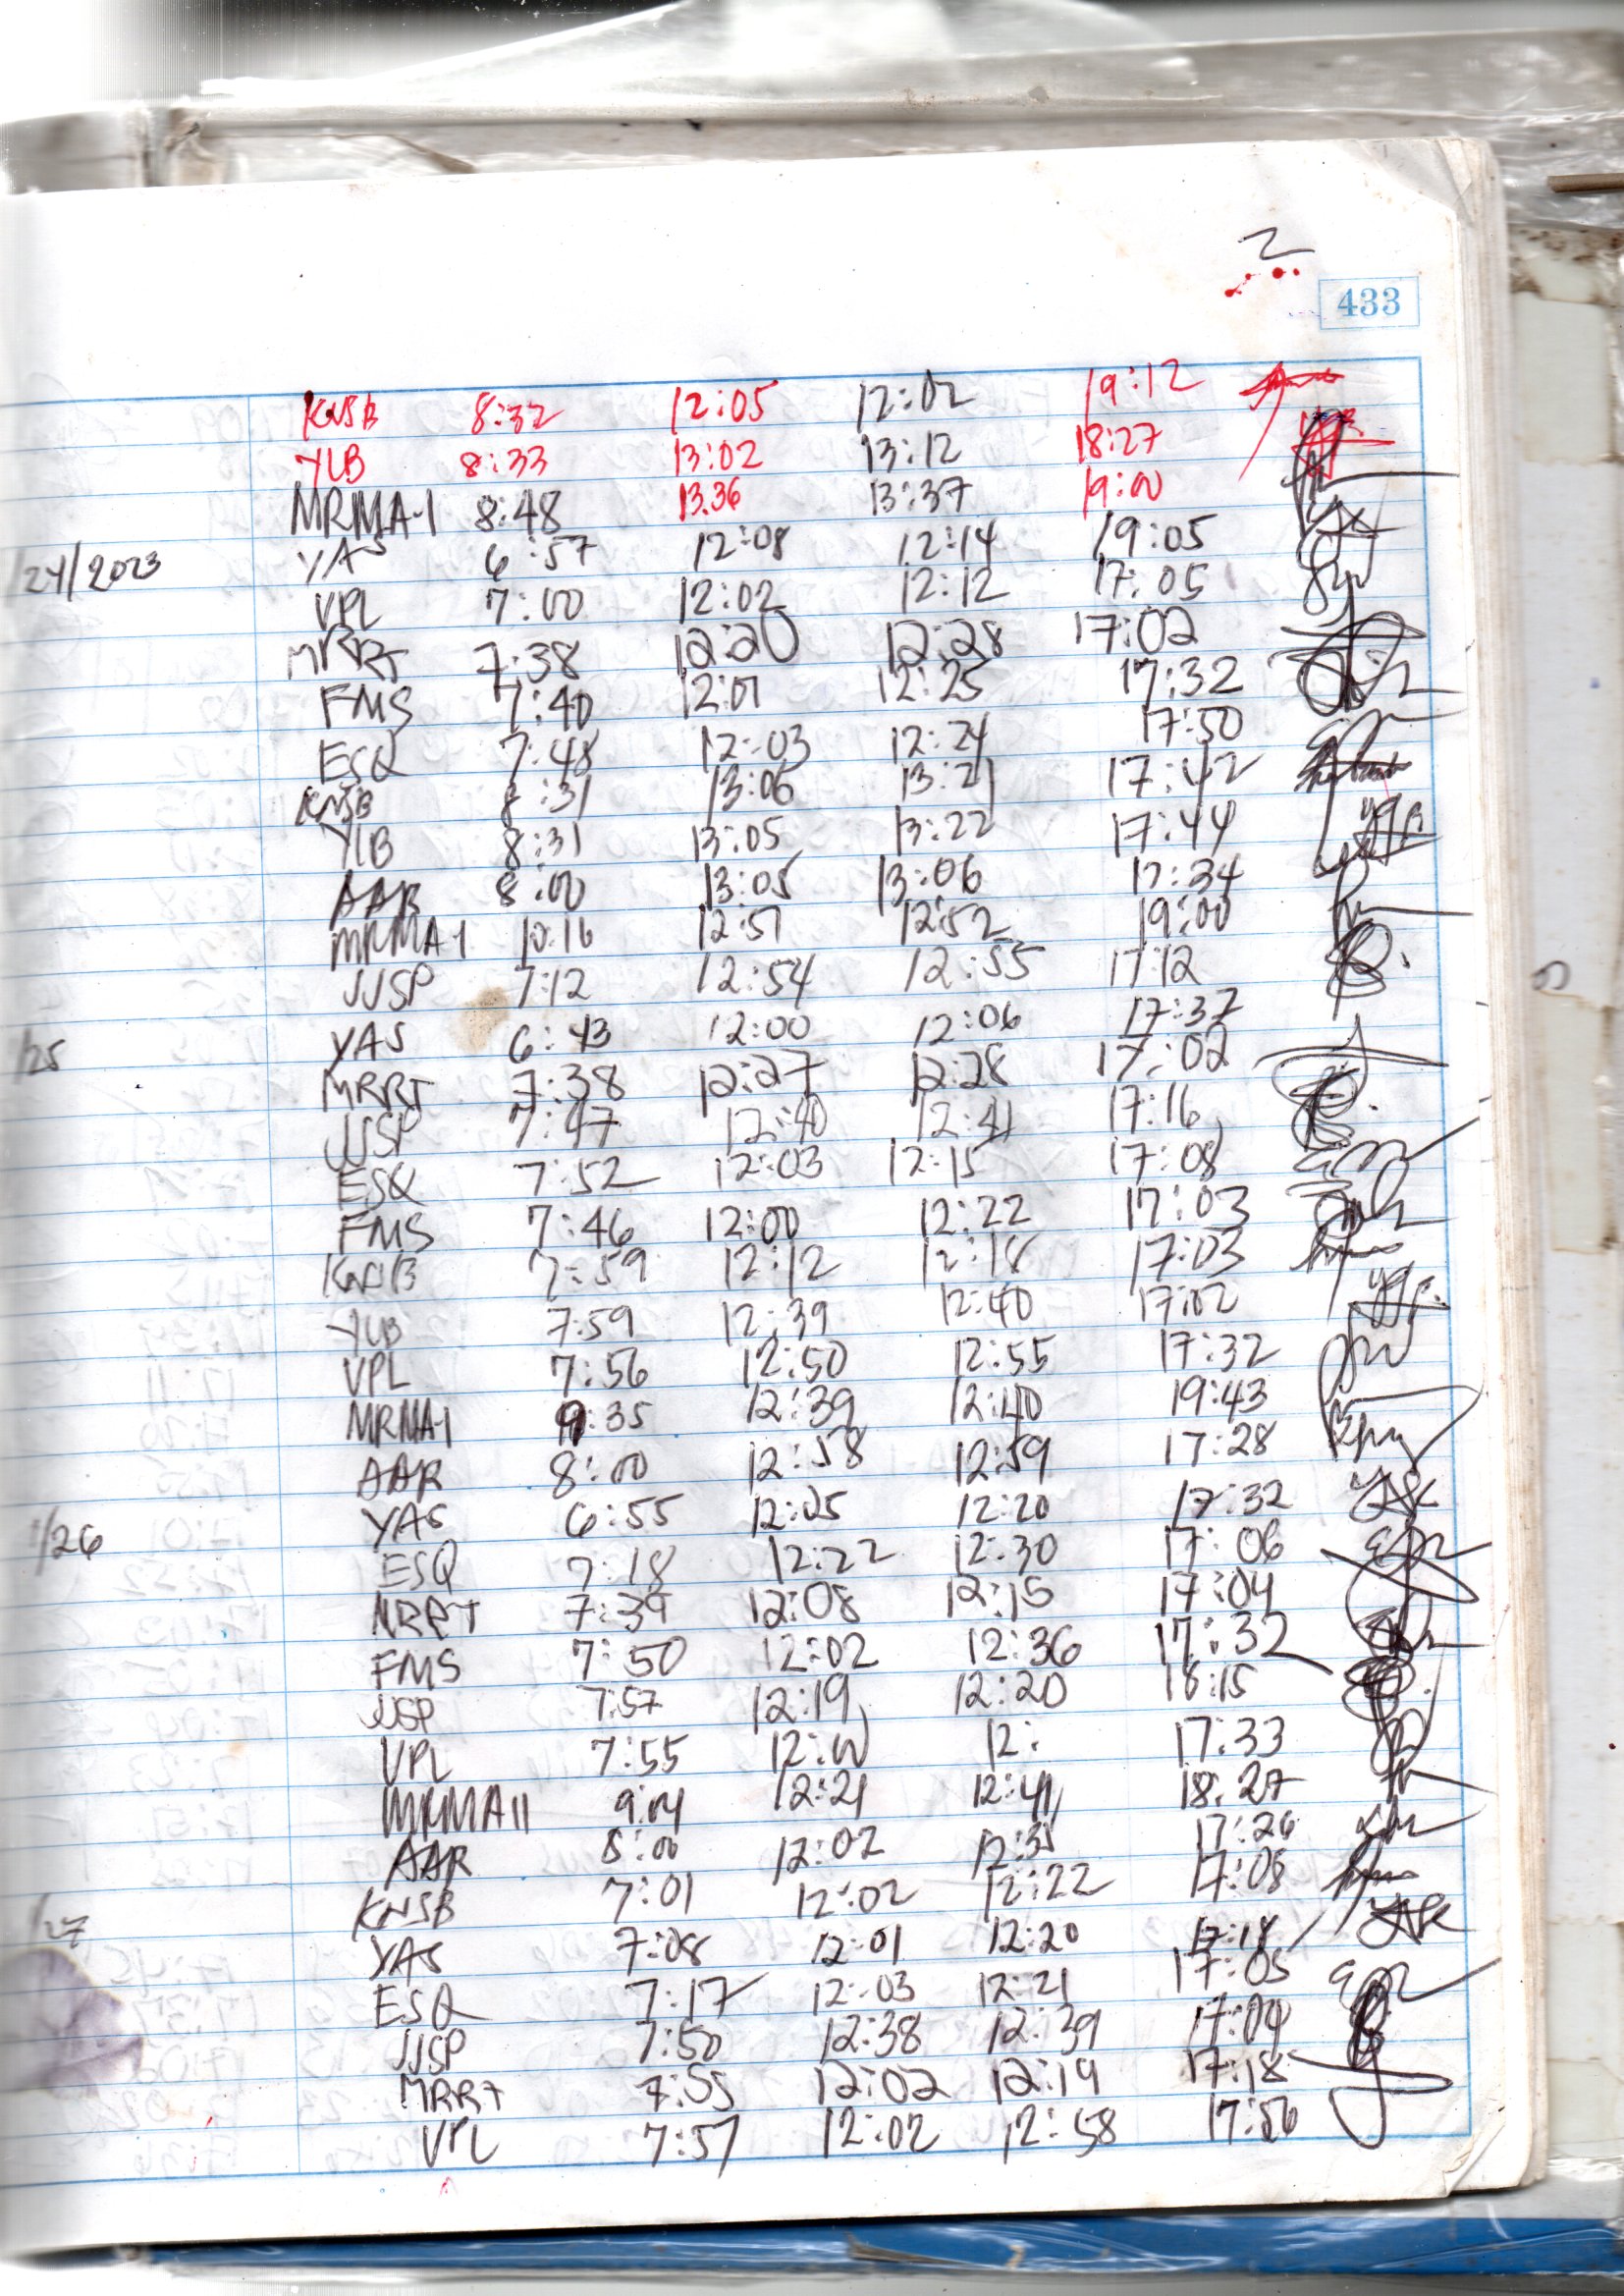 2
433
KNSB 8:32 12:05 12:02 19:12
YLB 8:33 13:02 13:12 18:27
MRMA-1 8:48 13.36 13:37 19:00
1/24/2023 YAS 6:57 12:08 12:14 19:05
VPL 7:00 12:02 12:12 17:05
MRRT 7:38 12:20 12:28 17:02
FMS 7:40 12:01 12:25 17:32
ESQ 7:48 12:03 12:24 17:50
KNSB 8:31 13:06 13:21 17:42
YLB 8:31 13:05 13:22 17:44
AAR 8:00 13:05 13:06 17:34
MRMA-1 10:16 12:51 12:52 19:00
JJSP 7:12 12:54 12:55 17:12
1/25 YAS 6:43 12:00 12:06 17:37
MRRT 7:38 12:27 12:28 17:02
JJSP 7:47 12:40 12:41 17:16
ESQ 7:52 12:03 12:15 17:08
FMS 7:46 12:00 12:22 17:03
KNSB 7:59 12:12 12:18 17:03
YLB 7:59 12:39 12:40 17:02
VPL 7:56 12:50 12:55 17:32
MRMA-1 9:35 12:39 12:40 19:43
AAR 8:00 12:58 12:59 17:28
1/26 YAS 6:55 12:05 12:20 17:32
ESQ 7:18 12:22 12:30 17:06
MRRT 7:39 12:08 12:15 17:04
FMS 7:50 12:02 12:36 17:32
JJSP 7:57 12:19 12:20 18:15
VPL 7:55 12:00 12: 17:33
MRMA11 9:04 12:21 12:41 18:27
AAR 8:00 12:02 12:31 17:26
KNSB 7:01 12:02 12:22 17:08
1/27 YAS 7:08 12:01 12:20 17:18
ESQ 7:17 12:03 12:21 17:05
JJSP 7:50 12:38 12:39 17:04
MRRT 7:55 12:02 12:19 17:18
VPL 7:57 12:02 12:58 17:56